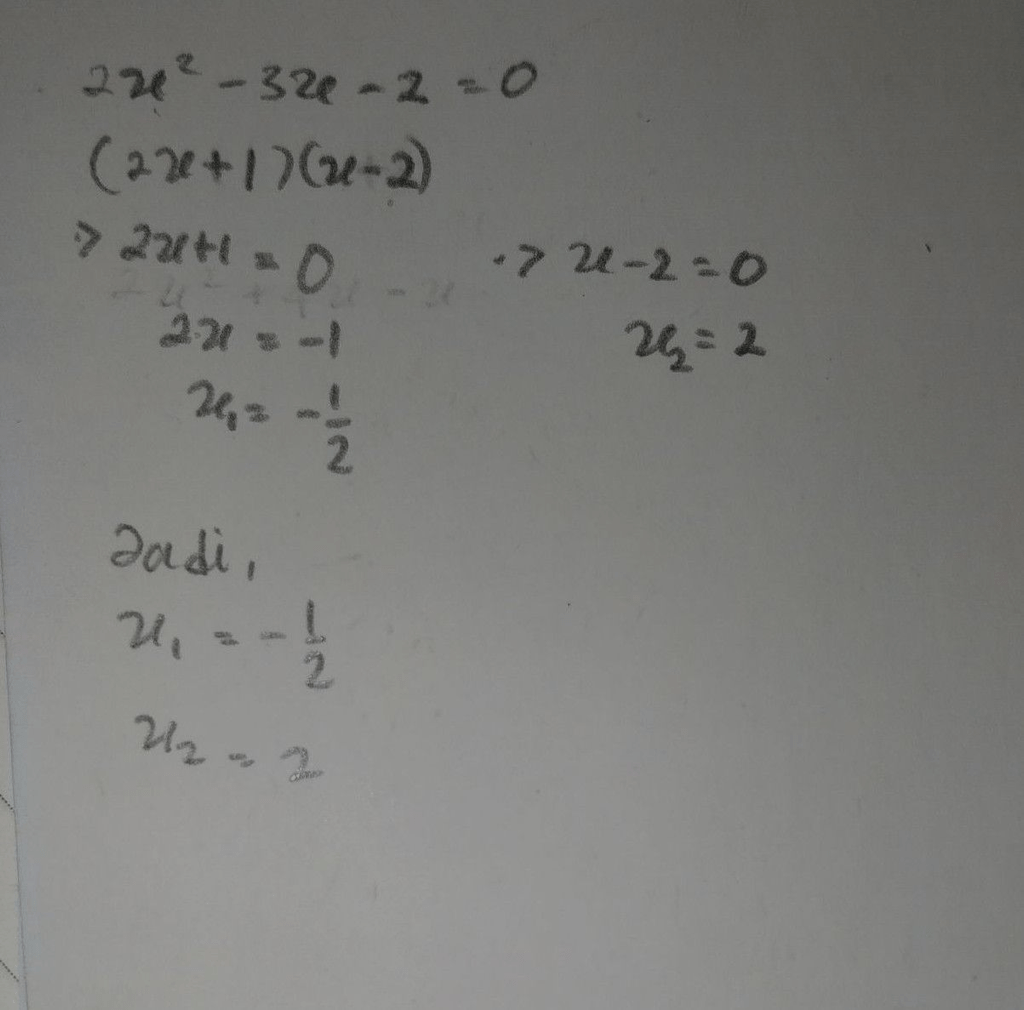 2x² - 3x - 2 = 0
(2x+1)(x-2)
·> 2x+1 = 0
·> x-2 = 0
2x = -1
x₂ = 2
x₁ = -1/2
Jadi,
x₁ = -1/2
x₂ = 2